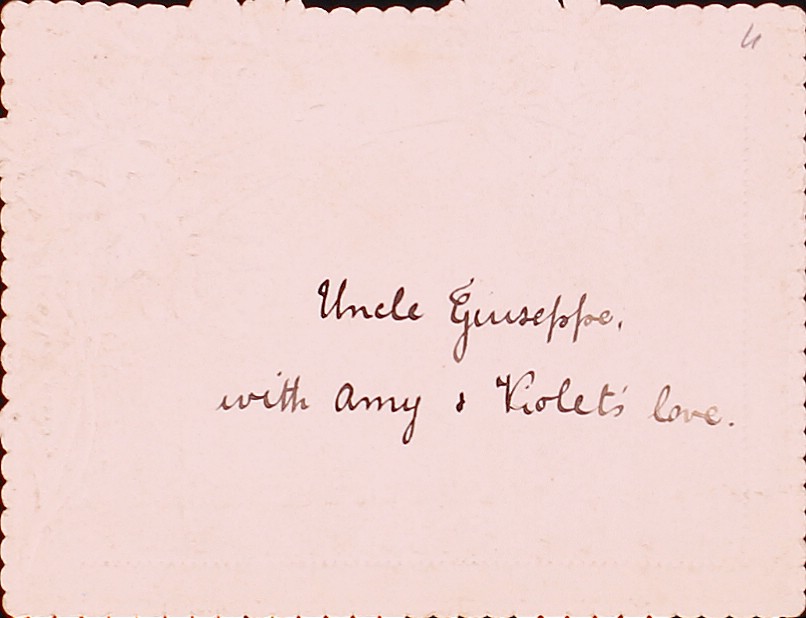 Uncle Giuseppe.
with Amy & Violet's love.